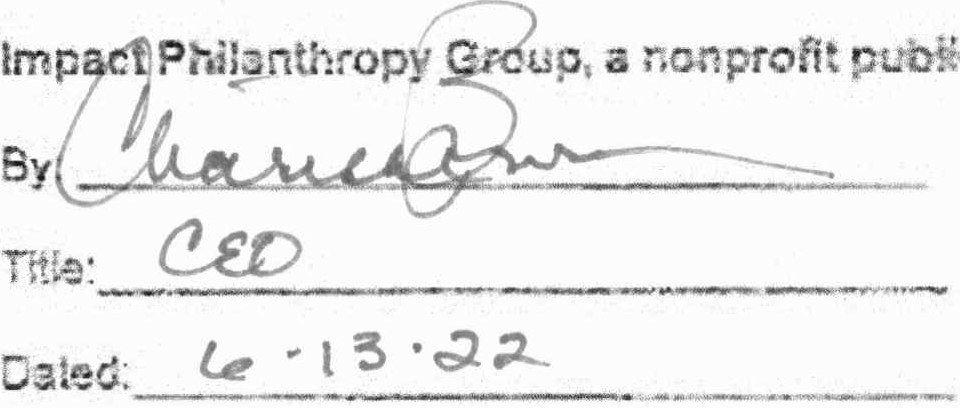 Impact Philanthropy Group, a nonprofit publi
By
Title: CEO
Dated: 6-13-22